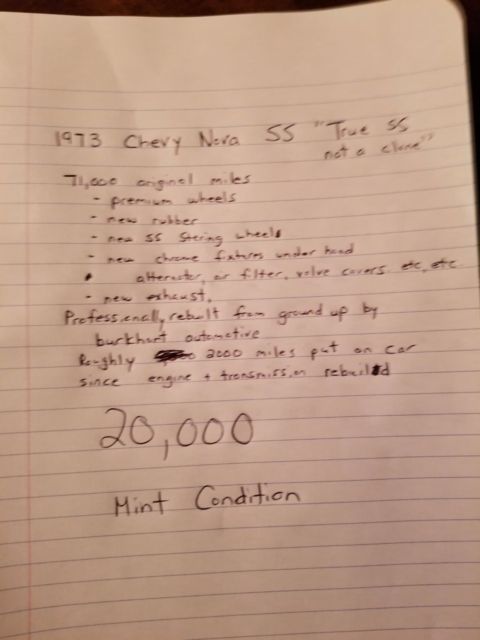 1973 Chevy Nova SS "True SS
not a clone"
71,000 original miles
- premium wheels
- new rubber
- new SS Stering wheel
- new chrome fixtures under hood
• alternator, air filter, valve covers etc, etc
- new exhaust.
Professionally rebuilt from ground up by
burkhart automotive
Roughly 2000 miles put on car
since engine + transmission rebuild
20,000
Mint Condition